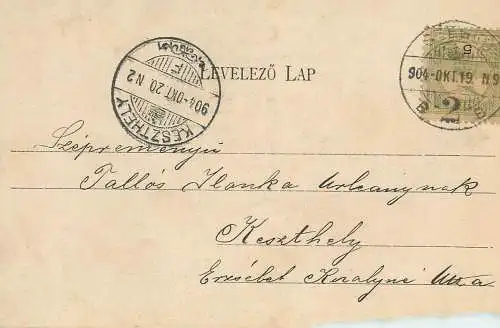 LEVELEZŐ LAP
KESZTHELY
904-OKT. 20. N 2
904-OKT. 19 N 9
5
2
Szépreményü
Tallós Ilonka Urleánynak
Keszthely
Erzsébet Királyné Utza